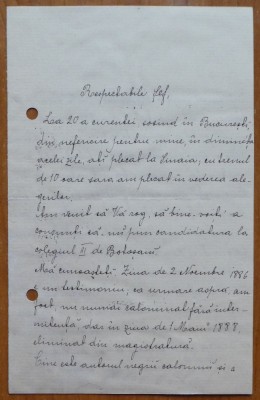 Respectabile Șef,
La 20 a curentei sosind în București,
din nefericire pentru mine, în dimineața
acelei zile, ați plecat la Sinaia, cu trenul
de 10 care sara am plecat în vederea ale-
gerilor.
Am venit să Vă rog, să bine-voiți a
consimți să-mi pun candidatura la
colegiul II de Botoșani.
Mă cunoașteți. Ziua de 2 Noembre 1886
e un testimoniu, ca urmare asupra am
fost, nu numai calomniat fără inter-
mitență, dar în ziua de 1 Maiu 1888
eliminat din magistratură.
Cine este autorul negrei calomnii și a